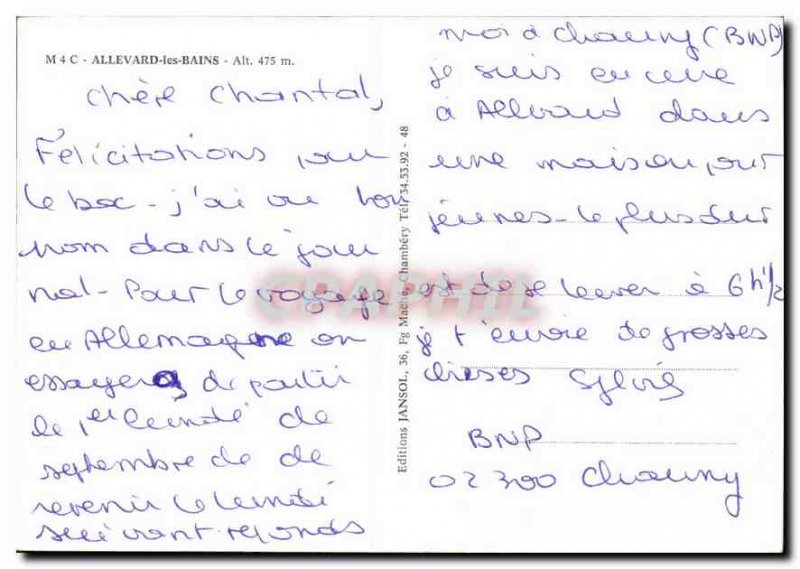 M 4 C - ALLEVARD-les-BAINS - Alt. 475 m.
Chère Chantal,
Félicitations pour
le bac - j'ai vu ton
nom dans le jour
nal - Pour le voyage
en Allemagne on
essayera de partir
le 1er lundi de
septembre de de
revenir le lundi
suivant réponds
Editions JANSOL, 36, Fg Maché, Chambéry Tél. 34.53.92 - 48
moi à Chauny (BNP)
je suis encore
à Allevard dans
une maison pour
jeunes - le plus dur
est de se lever à 6h1/2
je t'envoie de grosses
bises Sylvie
BNP
02300 Chauny
CPAPHIL